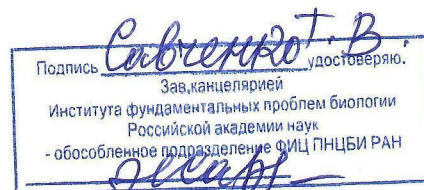 Подпись Савченко Т. В. удостоверяю.
Зав.канцелярией
Института фундаментальных проблем биологии
Российской академии наук
- обособленное подразделение ФИЦ ПНЦБИ РАН